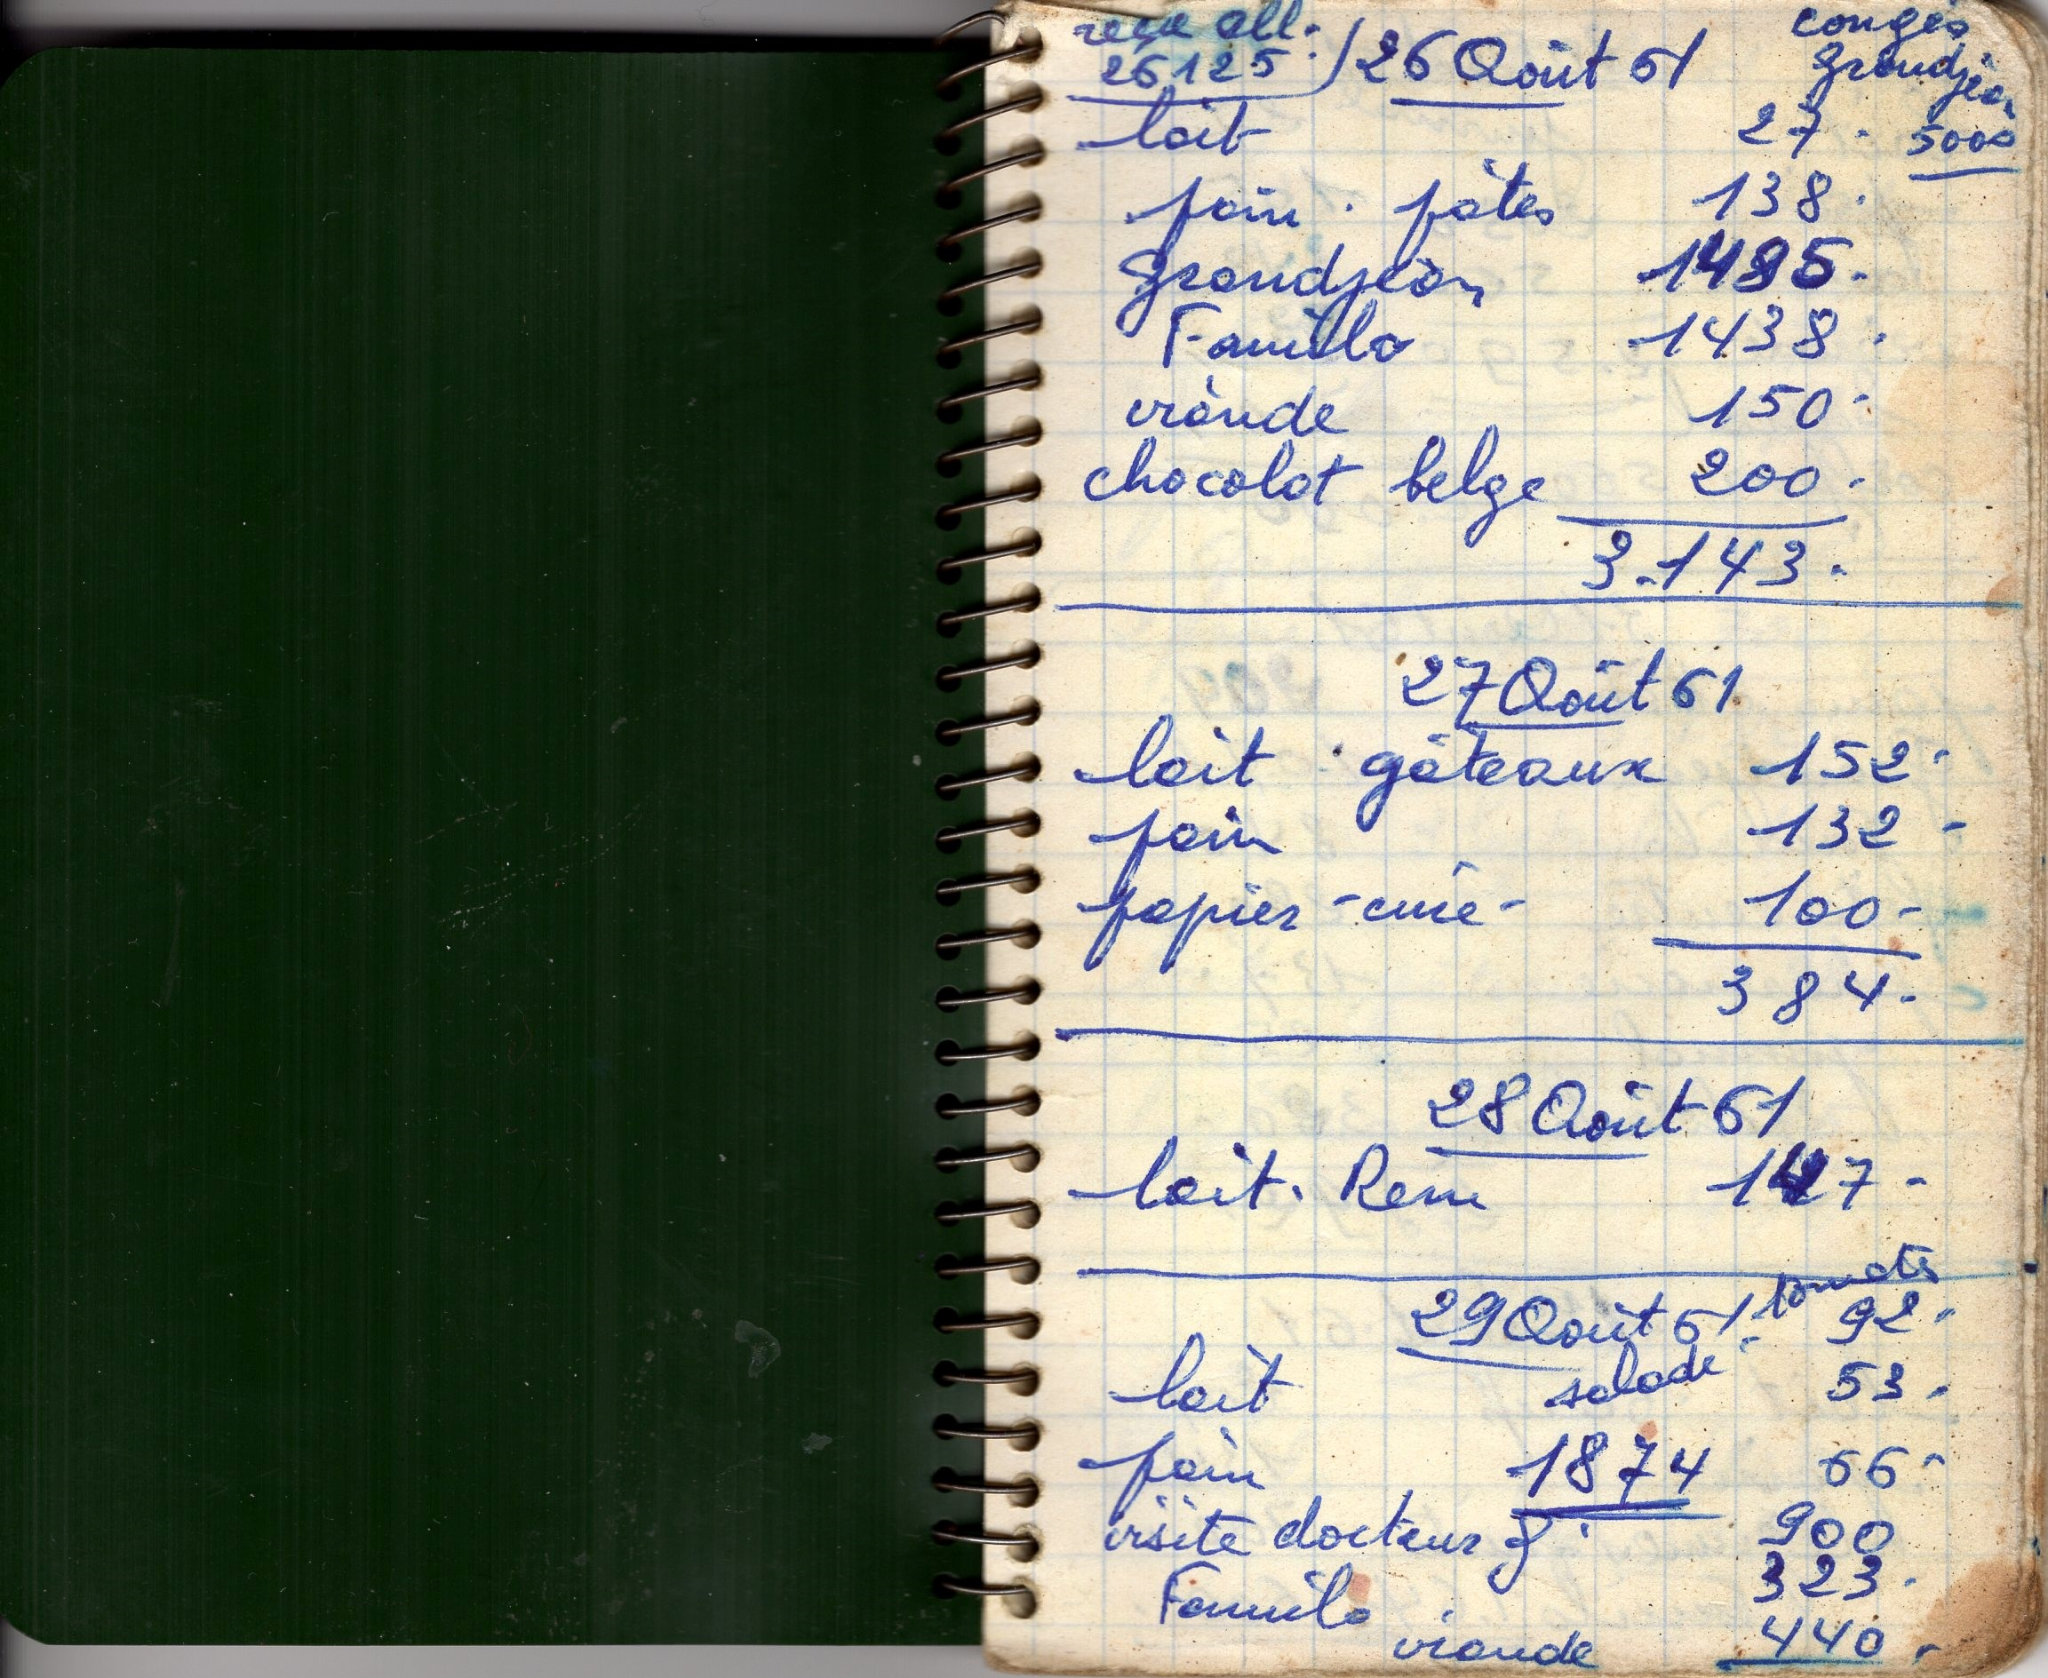 reçu all. 26125
26 Août 61
congés Grandjean 5000
lait 27.
pain. pâtes 138.
Grandjean 1495.
Famila 1438.
viande 150.
chocolat belge 200.
3.143.
27 Août 61
lait gâteaux 152.
pain 132 -
papier - ciné - 100 -
384.
28 Août 61
lait. Rem 147 -
29 Août 61. tomates 92.
lait salade 53.
pain 1874 66.
visite docteur 900
Famila 323.
viande 440.